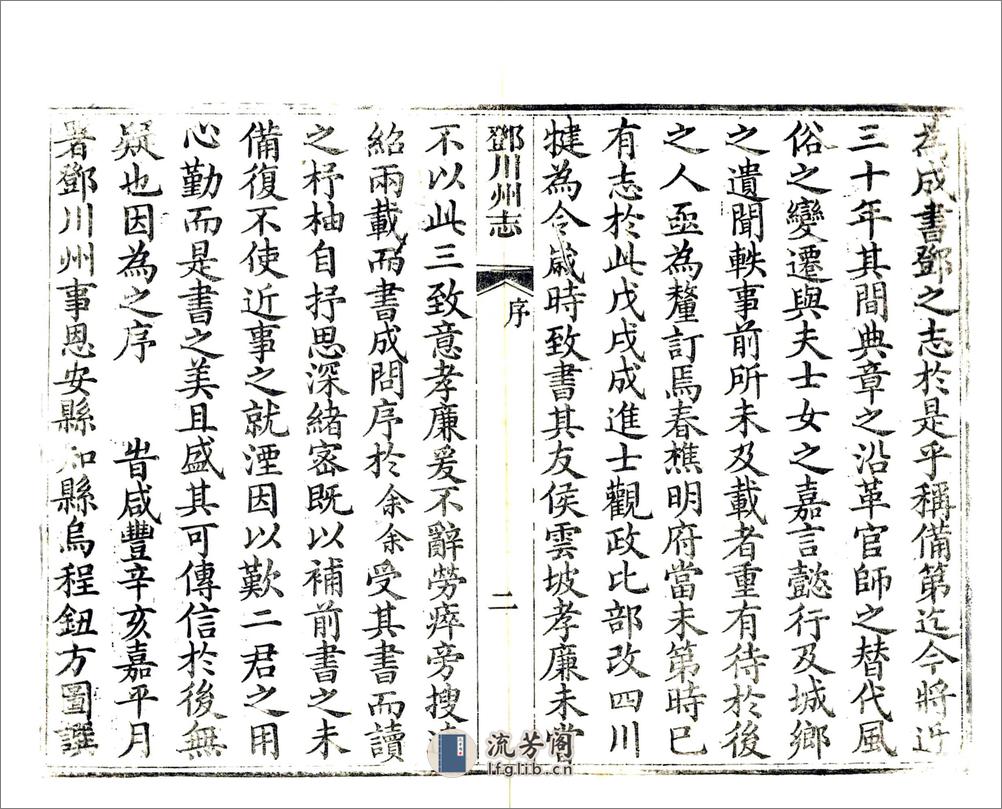 為成書鄧之志於是乎稱備第迄今將近
三十年其間典章之沿革官師之替代風
俗之變遷與夫士女之嘉言懿行及城鄉
之遺聞軼事前所未及載者重有待於後
之人亟為釐訂焉春樵明府當未第時已
有志於此戊戌成進士觀政比部改四川
犍為令歲時致書其友侯雲坡孝廉未嘗
鄧川州志
序
二
不以此三致意孝廉爰不辭勞瘁旁搜
紹兩載而書成問序於余余受其書而讀
之杼柚自抒思深緒密既以補前書之未
備復不使近事之就湮因以歎二君之用
心勤而是書之美且盛其可傳信於後無
疑也因為之序
旹咸豐辛亥嘉平月
署鄧川州事恩安縣知縣烏程鈕方圖譔
流芳阁
lfglib.cn